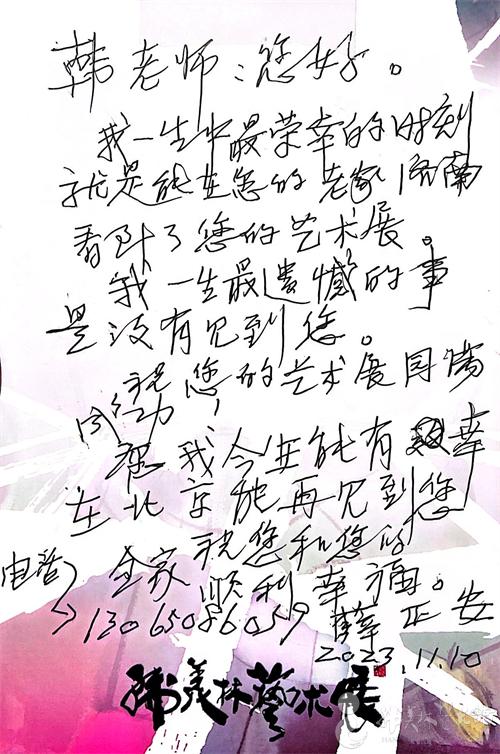 韩老师：您好。
我一生中最荣幸的时刻
就是能在您的老家济南
看到了您的艺术展。
我一生最遗憾的事
是没有见到您。
祝您的艺术展圆满
成功！
愿我今生能有幸
在北京能再见到您
祝您和您的
全家顺利幸福。
电话
13065086059 薛正安
2023.11.10
韩美林藝术展